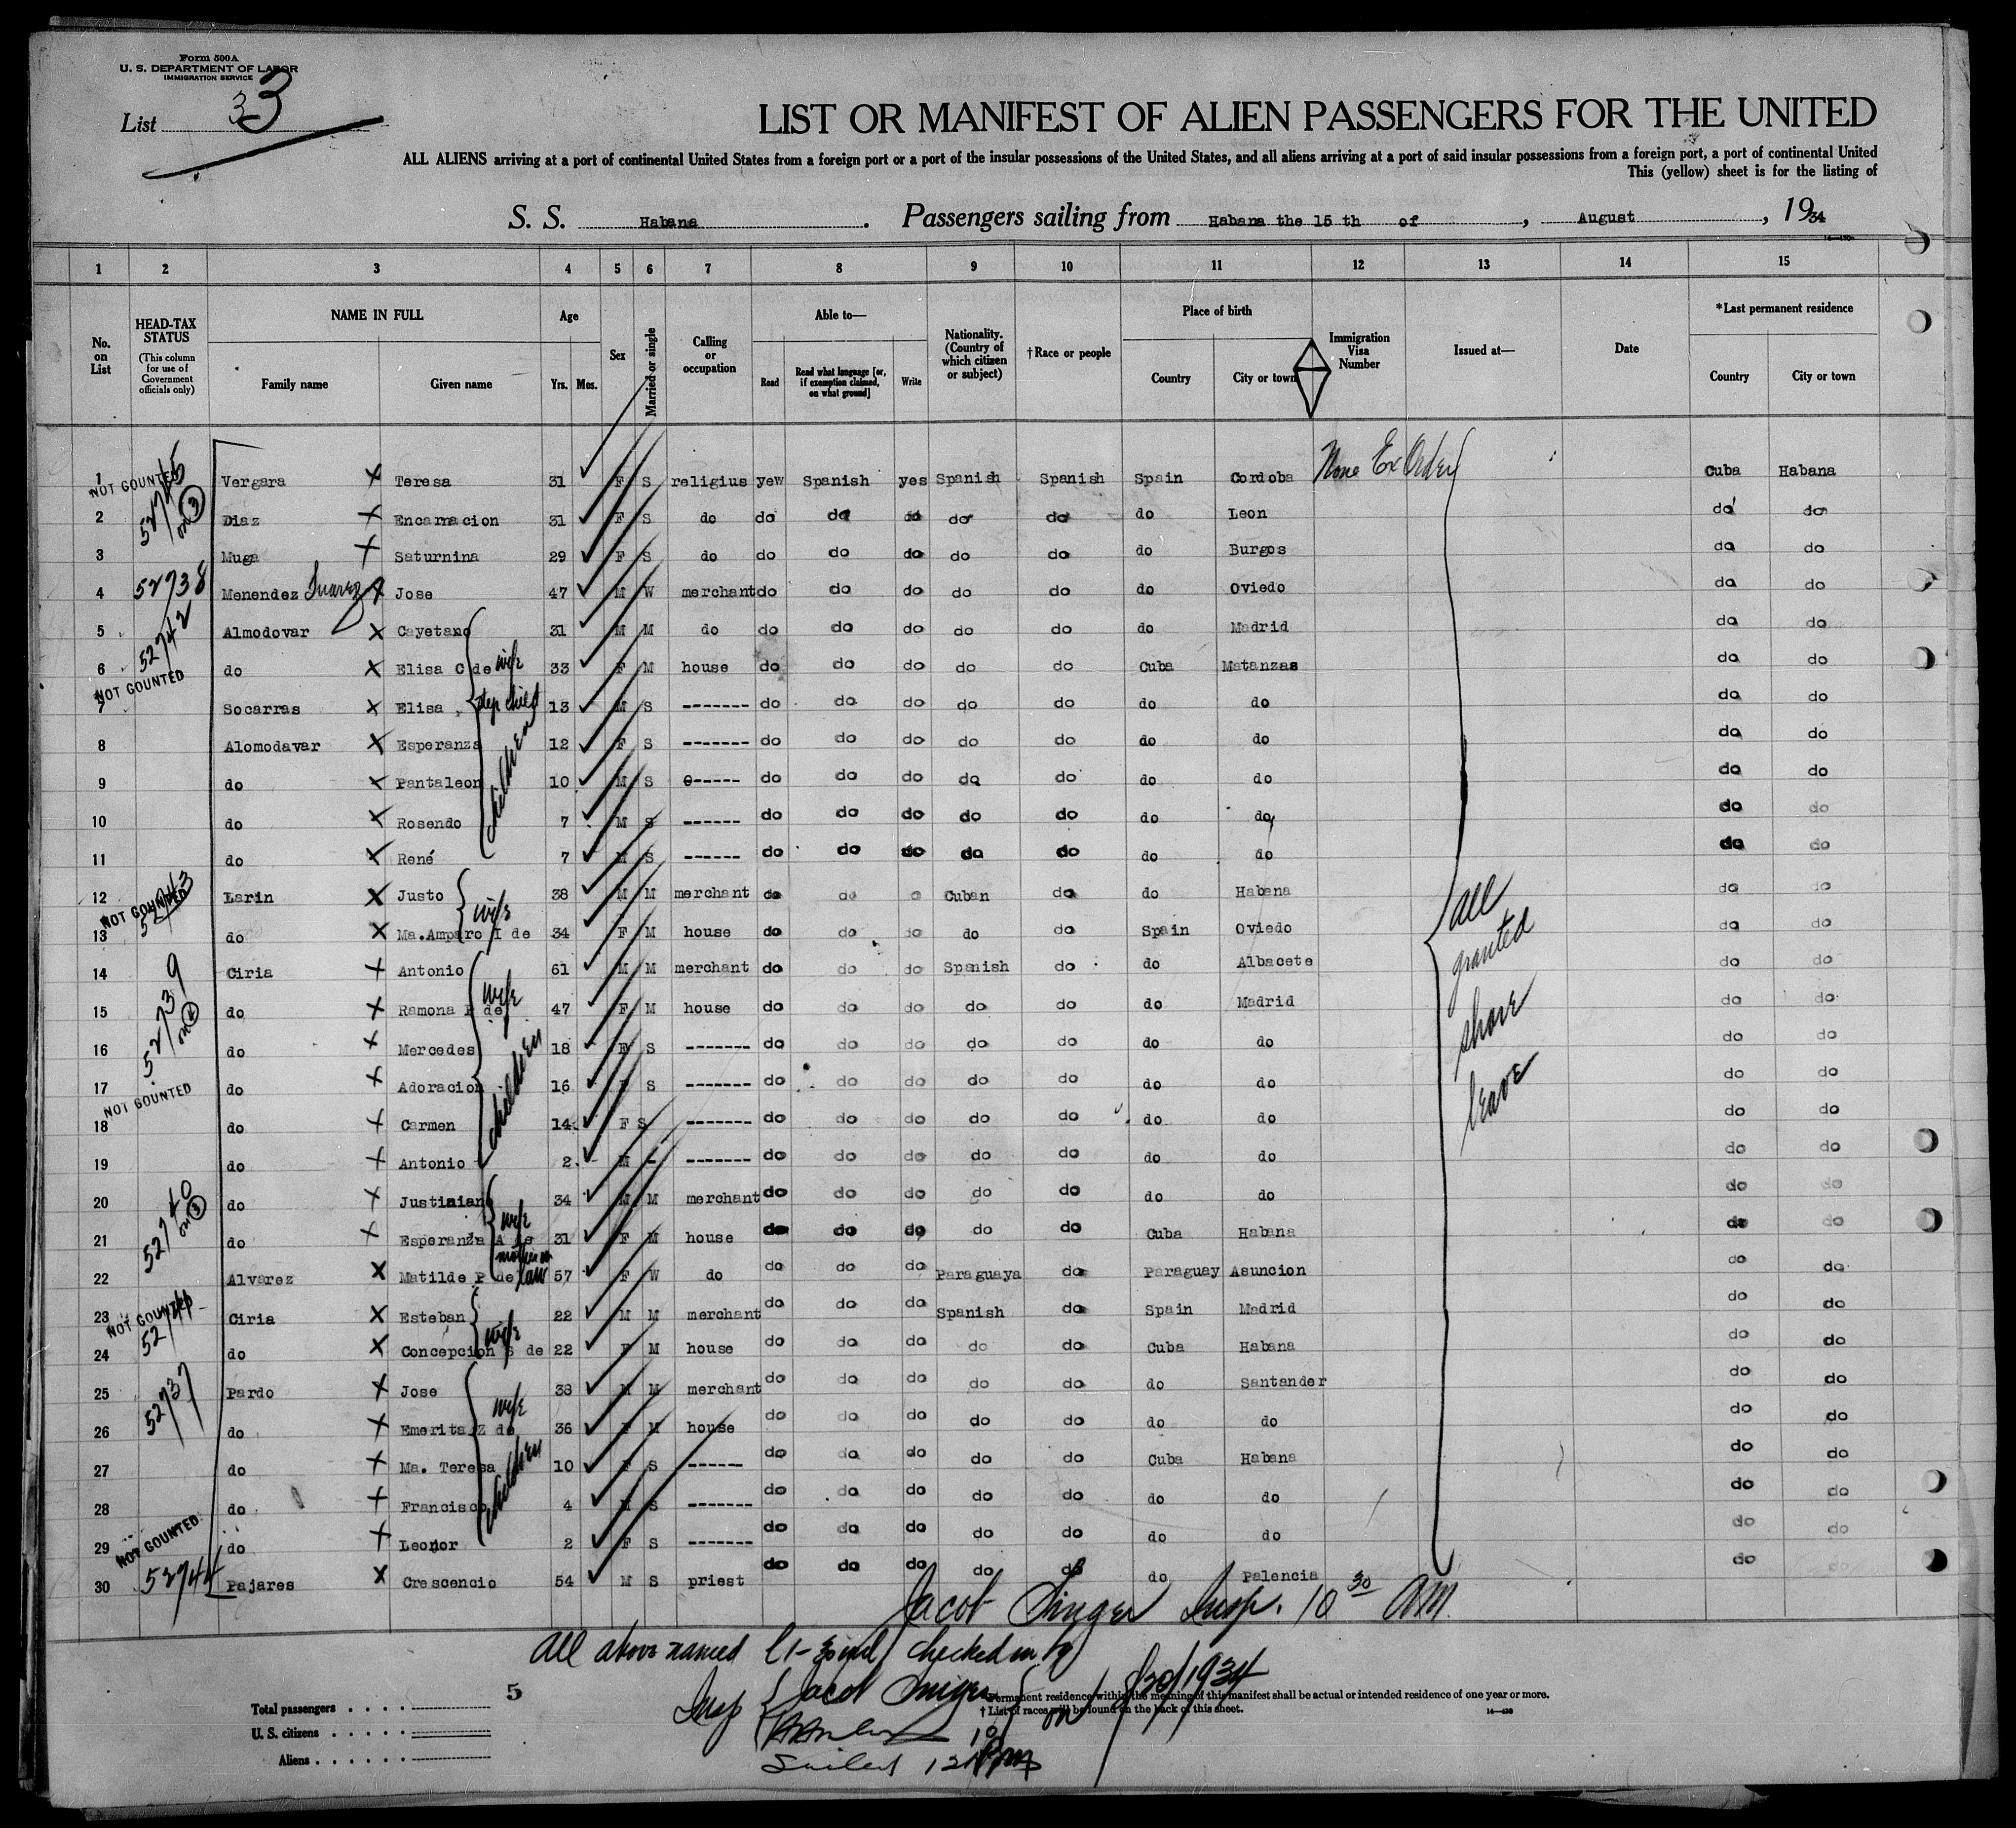 Form 500A
U. S. DEPARTMENT OF LABOR
IMMIGRATION SERVICE
List 33
LIST OR MANIFEST OF ALIEN PASSENGERS FOR THE UNITED
ALL ALIENS arriving at a port of continental United States from a foreign port or a port of the insular possessions of the United States, and all aliens arriving at a port of said insular possessions from a foreign port, a port of continental United
This (yellow) sheet is for the listing of
S. S. Habana. Passengers sailing from Habana the 15 th of, August, 1934
1 2 3 4 5 6 7 8 9 10 11 12 13 14 15
No. on List
HEAD-TAX STATUS (This column for use of Government officials only)
NAME IN FULL Family name Given name
Age Yrs. Mos.
Sex
Married or single
Calling or occupation
Able to— Read Read what language [or, if exemption claimed, on what ground] Write
Nationality. (Country of which citizen or subject)
†Race or people
Place of birth Country City or town
Immigration Visa Number
Issued at—
Date
*Last permanent residence Country City or town
1 NOT COUNTED 52745 Vergara X Teresa 31 F S religius yew Spanish yes Spanish Spanish Spain Cordoba None Ex Order Cuba Habana
2 on 3 Diaz X Encarnacion 31 F S do do do do do do do Leon do do
3 Muga X Saturnina 29 F S do do do do do do do Burgos do do
4 52738 Menendez Suarez X Jose 47 M W merchant do do do do do do Oviedo do do
5 52742 Almodovar X Cayetano 31 M M do do do do do do do Madrid do do
6 do X Elisa C de wife 33 F M house do do do do do Cuba Matanzas do do
7 NOT COUNTED Socarras X Elisa step child 13 M S ------- do do do do do do do do do
8 Alomodavar X Esperanza 12 F S ------- do do do do do do do do do
9 do X Pantaleon children 10 M S 0----- do do do do do do do do do
10 do X Rosendo 7 M S ------ do do do do do do do do do
11 do X René 7 M S ------ do do do do do do do do do
12 NOT COUNTED 52743 Larin X Justo 38 M M merchant do do o Cuban do do Habana do do
13 do X Ma.Amparo I de wife 34 F M house do do do do do Spain Oviedo do do
14 Ciria X Antonio 61 M M merchant do do do Spanish do do Albacete do do
15 52739 on 2 do X Ramona P de wife 47 F M house do do do do do do Madrid do do
16 do X Mercedes 18 F S ------- do do do do do do do do do
17 do X Adoracion children 16 F S ------- do do do do do do do do do
18 NOT COUNTED do X Carmen 14 F S ------- do do do do do do do do do
19 do X Antonio 2 M - ------- do do do do do do do do do
20 do X Justiniano 34 M M merchant do do do do do do do do do
21 52740 on 3 do X Esperanza A de wife 31 F M house do do do do do Cuba Habana do do
22 Alvarez X Matilde P de mother in law 57 F W do do do do Paraguaya do Paraguay Asuncion do do
23 NOT COUNTED Ciria X Esteban 22 M M merchant do do do Spanish do Spain Madrid do do
24 do X Concepcion S de wife 22 F M house do do do do do Cuba Habana do do
25 52737 Pardo X Jose 38 M M merchant do do do do do do Santander do do
26 do X Emerita Z de wife 36 F M house do do do do do do do do do
27 do X Ma. Teresa 10 F S ------ do do do do do Cuba Habana do do
28 do X Francisco children 4 M S ------- do do do do do do do do do
29 NOT COUNTED do X Leonor 2 F S ------- do do do do do do do do do
30 52744 Pajares X Crescencio 54 M S priest do do do do do do Palencia do
All granted shore leave
Jacob Singer Insp. 10 30 AM.
All above named (1-30 incl) checked in by
Insp { Jacob Singer } on 8/20/1934
Sailed 12
5
Total passengers
U. S. citizens
Aliens
*Permanent residence within the meaning of this manifest shall be actual or intended residence of one year or more.
†List of races will be found on the back of this sheet.